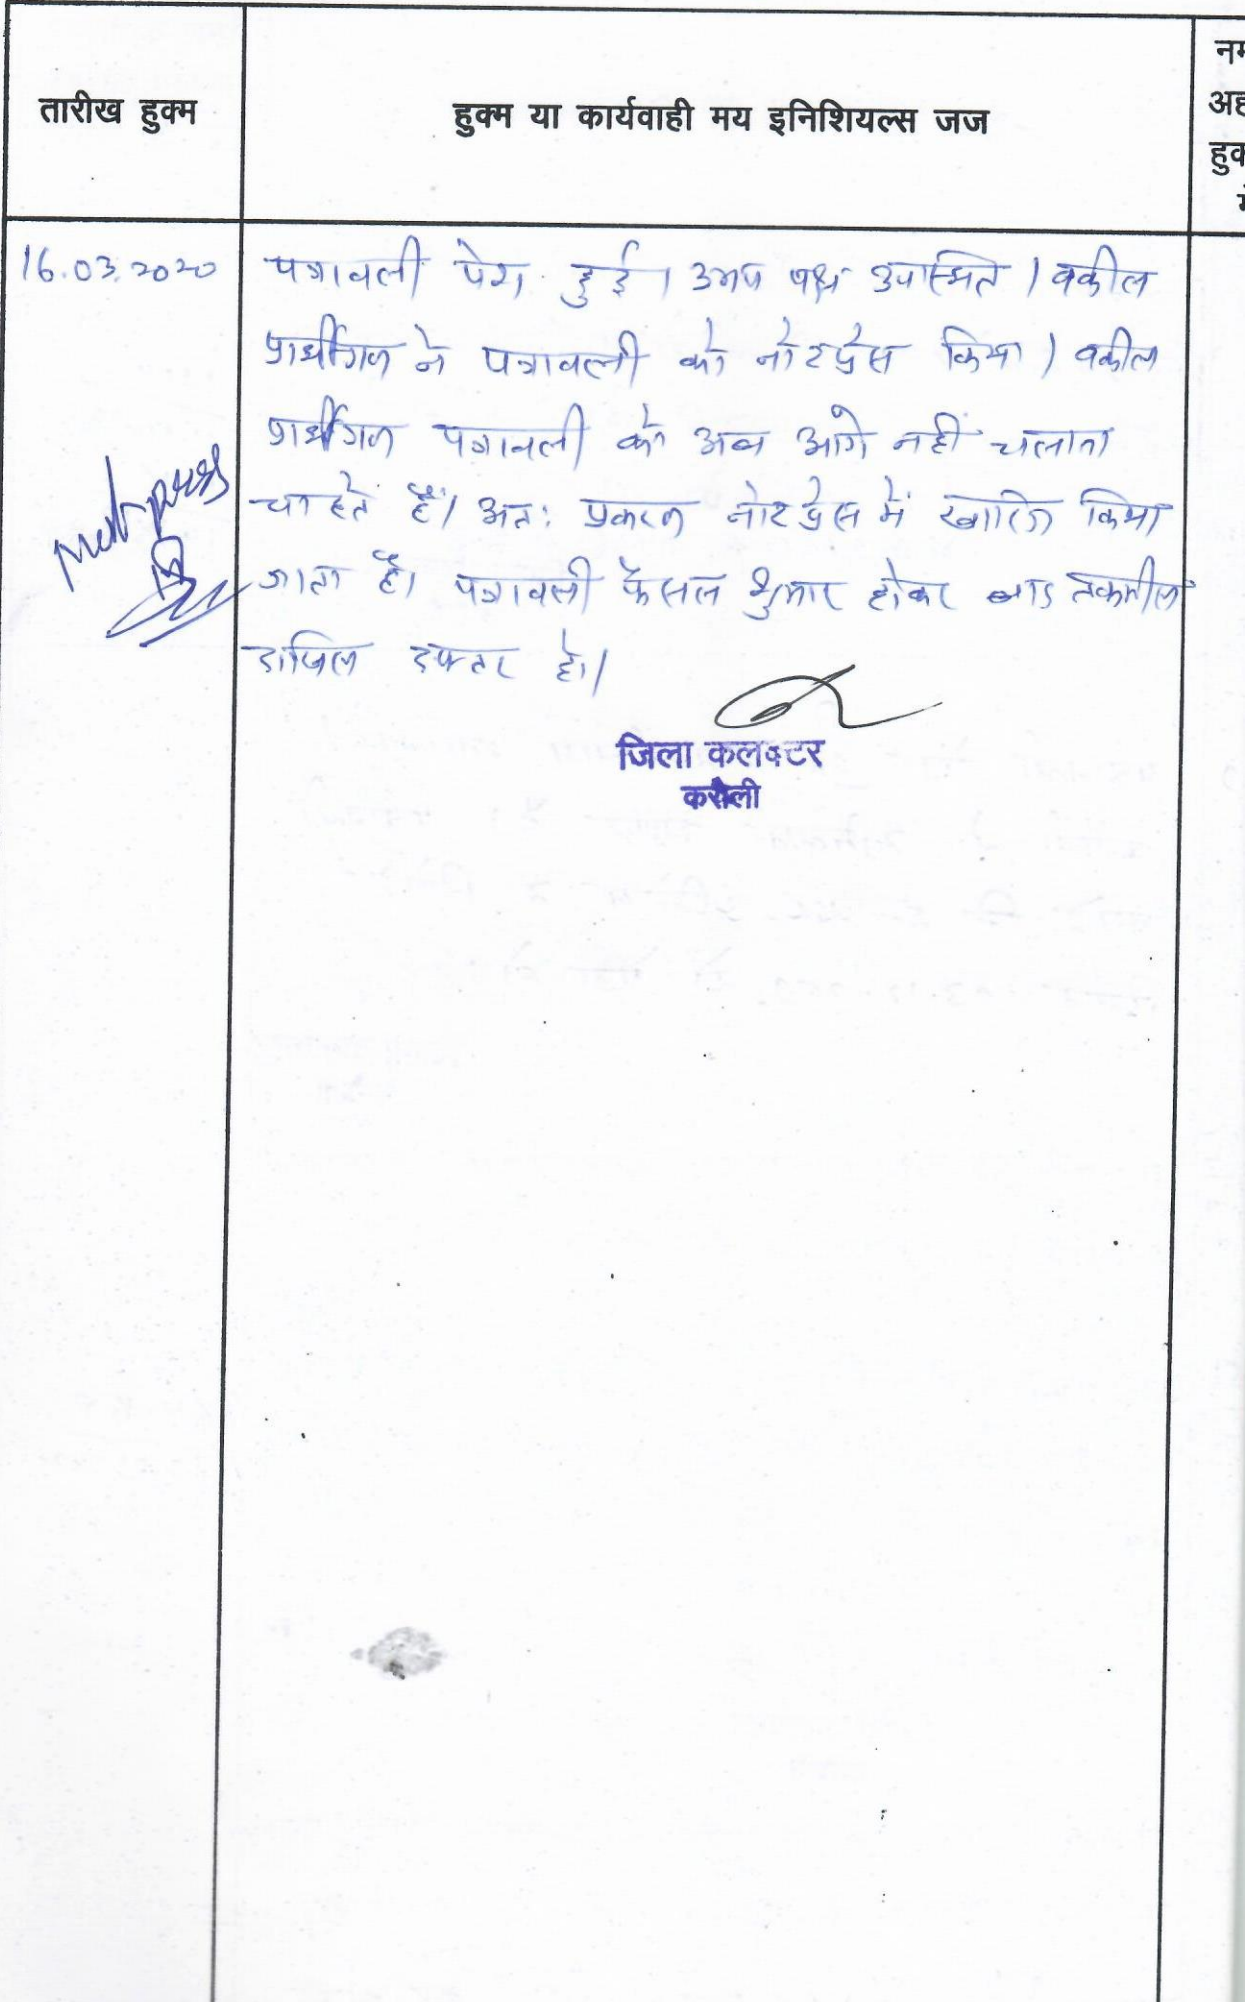 तारीख हुक्म
हुक्म या कार्यवाही मय इनिशियल्स जज
नम
अह
हुक
16.03.2020
पत्रावली पेश हुई। उभय पक्ष उपस्थित। वकील
प्रार्थीगण ने पत्रावली को नोटप्रेस किया। वकील
प्रार्थीगण पत्रावली को अब आगे नहीं चलाना
चाहते हैं। अतः प्रकरण नोटप्रेस में खारिज किया
जाता है। पत्रावली फैसल शुमार होकर बाद तकमील
दाखिल दफ्तर हो।
not press
जिला कलक्टर
करौली